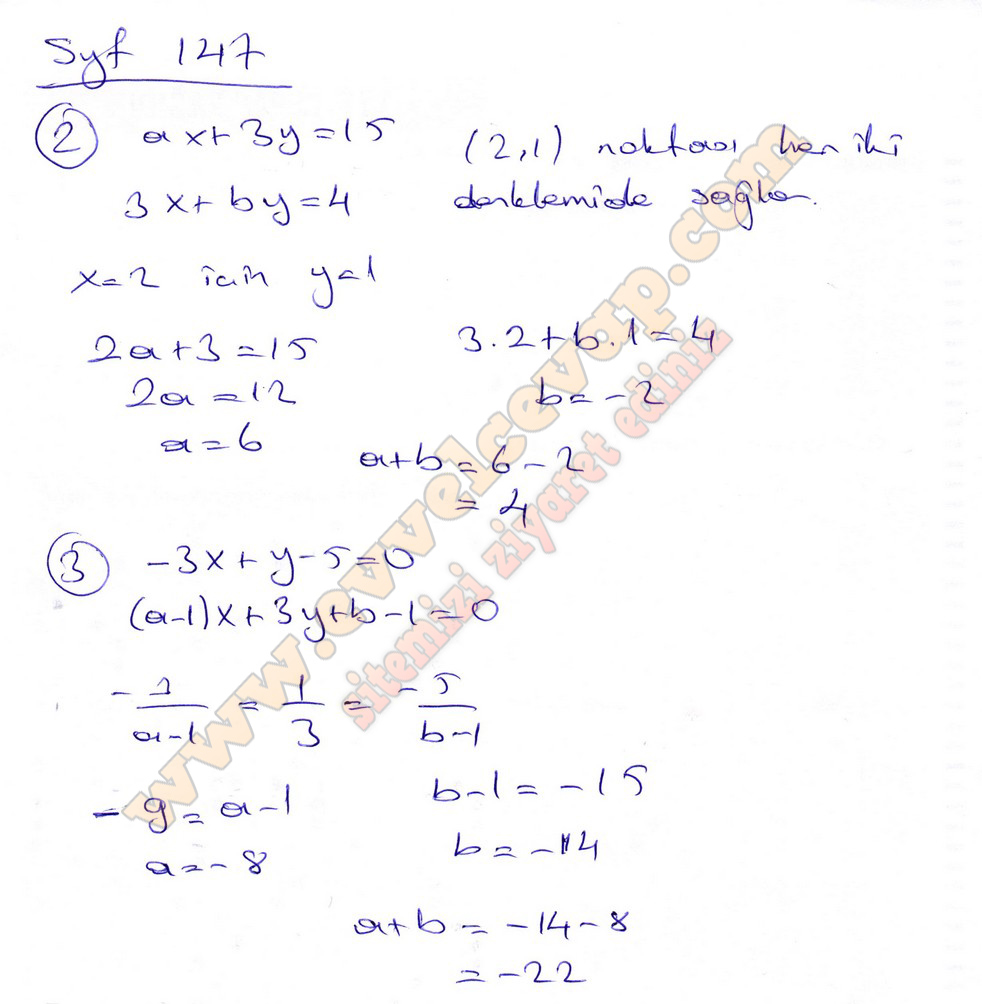 Syf 147
2 ax+3y=15 (2,1) noktası her iki
3x+by=4 denklemide sağlar.
x=2 için y=1
2a+3=15 3.2+b.1=4
2a=12 b=-2
a=6
a+b=6-2
=4
3 -3x+y-5=0
(a-1)x+3y+b-1=0
-3/a-1 = 1/3 = -5/b-1
-9=a-1 b-1=-15
a=-8 b=-14
a+b=-14-8
=-22
www.evvelcevap.com
sitemizi ziyaret ediniz